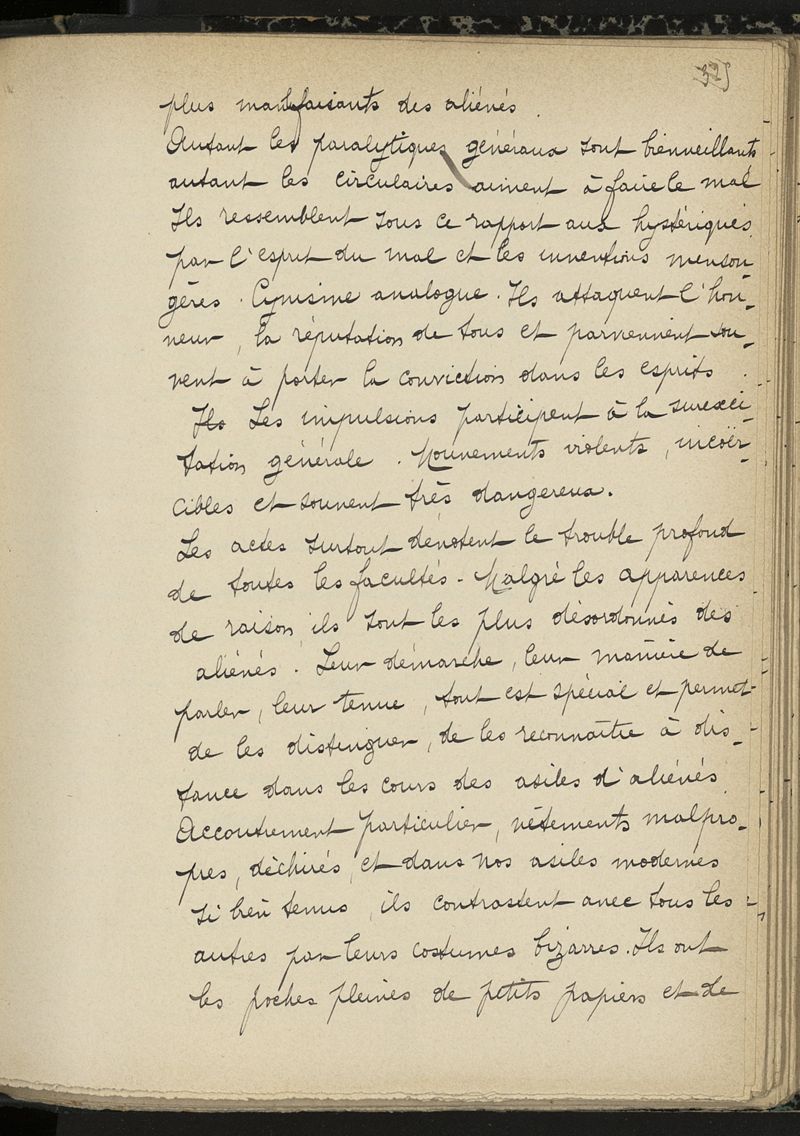 325
plus malfaisants des aliénés.
Autant les paralytiques généraux sont bienveillants
autant les circulaires aiment à faire le mal
Ils ressemblent sous ce rapport aux hystériques
par l'esprit du mal et les inventions menson-
gères. Cynisme analogue. Ils attaquent l'hon-
neur, la réputation de tous et parviennent sou-
vent à porter la conviction dans les esprits.
Ils Les impulsions participent à la surexci-
tation générale. Mouvements violents, incoër-
cibles et souvent très dangereux.
Les actes surtout dénotent le trouble profond
de toutes les facultés - Malgré les apparences
de raison, ils sont les plus désordonnés des
aliénés. Leur démarche, leur manière de
parler, leur tenue, tout est spécial et permet
de les distinguer, de les reconnaître à dis-
tance dans les cours des asiles d'aliénés.
Accoutrement particulier, vêtements malpro-
pres, déchirés, et dans nos asiles modernes
si bien tenus, ils contrastent avec tous les
autres par leurs costumes bizarres. Ils ont
les poches pleines de petits papiers et de